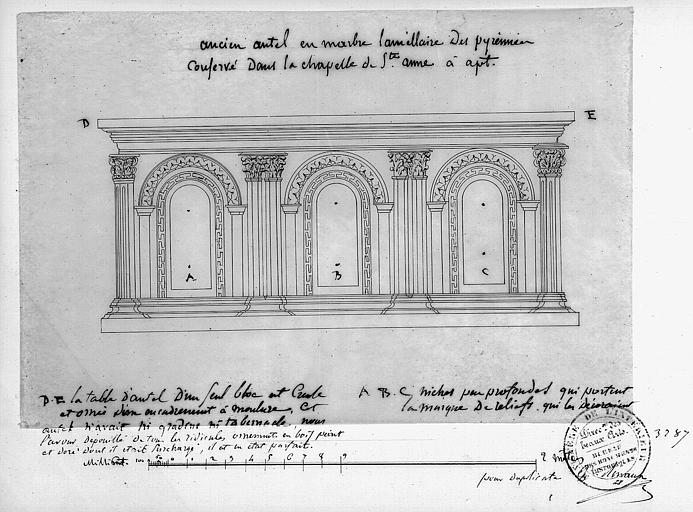 ancien autel en marbre lamellaire des pyrénnées
conservé Dans la chapelle de Ste anne à apt.
D E
A B C
D.E la table d'autel D'un seul bloc est Creuse
et ornée d'un encadrement à moulure, Cet
autel n'avait ni gradins ni tabernacle, nous
l'avons dépouillé de tous les ridicules ornements en bois peint
et doré dont il était surchargé, il est en état parfait.
A B C, niches peu profondes qui portent
la marque De reliefs, qui les décoraient
1 2 3 4 5 6 7 8 9
2 mètres
pour duplicata
3787